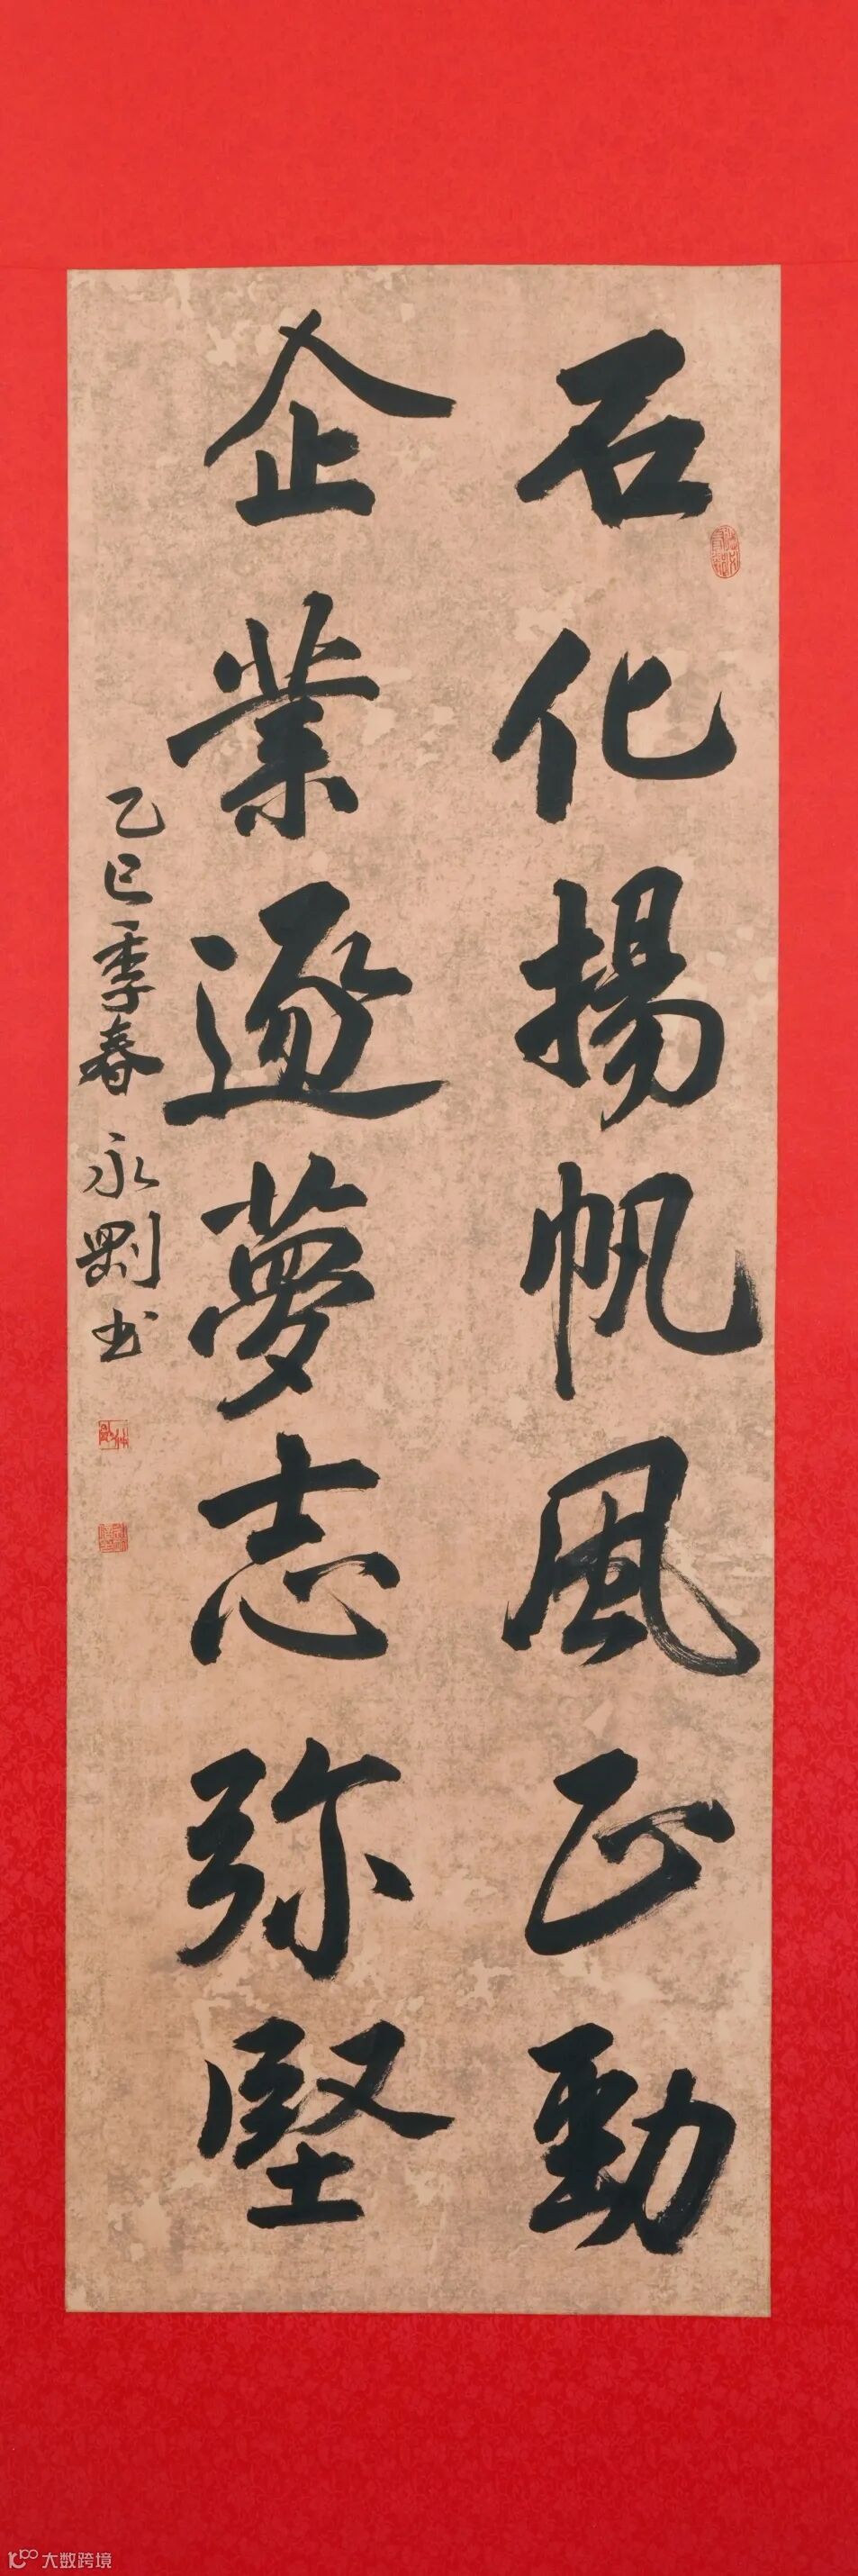 石化揚帆風正勁
企業逐夢志弥堅
乙巳季春永剛书
大数跨境